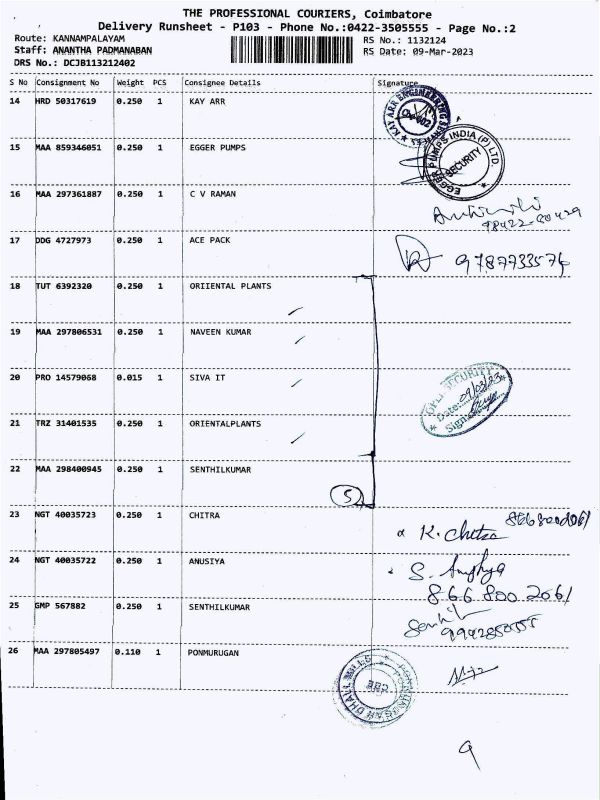 THE PROFESSIONAL COURIERS, Coimbatore
Delivery Runsheet - P103 - Phone No.:0422-3505555 - Page No.:2
Route: KANNAMPALAYAM
RS No.: 1132124
Staff: ANANTHA PADMANABAN
RS Date: 09-Mar-2023
DRS No.: DCJB113212402
S No Consignment No Weight PCS Consignee Details Signature
14 HRD 50317619 0.250 1 KAY ARR
KAY ARR ENGINEERING SERVICES
15 MAA 859346051 0.250 1 EGGER PUMPS
EGGER PUMPS INDIA (P) LTD.
SECURITY
16 MAA 297361887 0.250 1 C V RAMAN
17 DDG 4727973 0.250 1 ACE PACK
9787733576
18 TUT 6392320 0.250 1 ORIIENTAL PLANTS
19 MAA 297806531 0.250 1 NAVEEN KUMAR
20 PRO 14579068 0.015 1 SIVA IT
SECURITY
Date: 09/03/23
Sign
21 TRZ 31401535 0.250 1 ORIENTALPLANTS
22 MAA 298400945 0.250 1 SENTHILKUMAR
5
23 NGT 40035723 0.250 1 CHITRA
K. Chitra
24 NGT 40035722 0.250 1 ANUSIYA
866 800 2061
25 GMP 567882 0.250 1 SENTHILKUMAR
26 MAA 297805497 0.110 1 PONMURUGAN
9